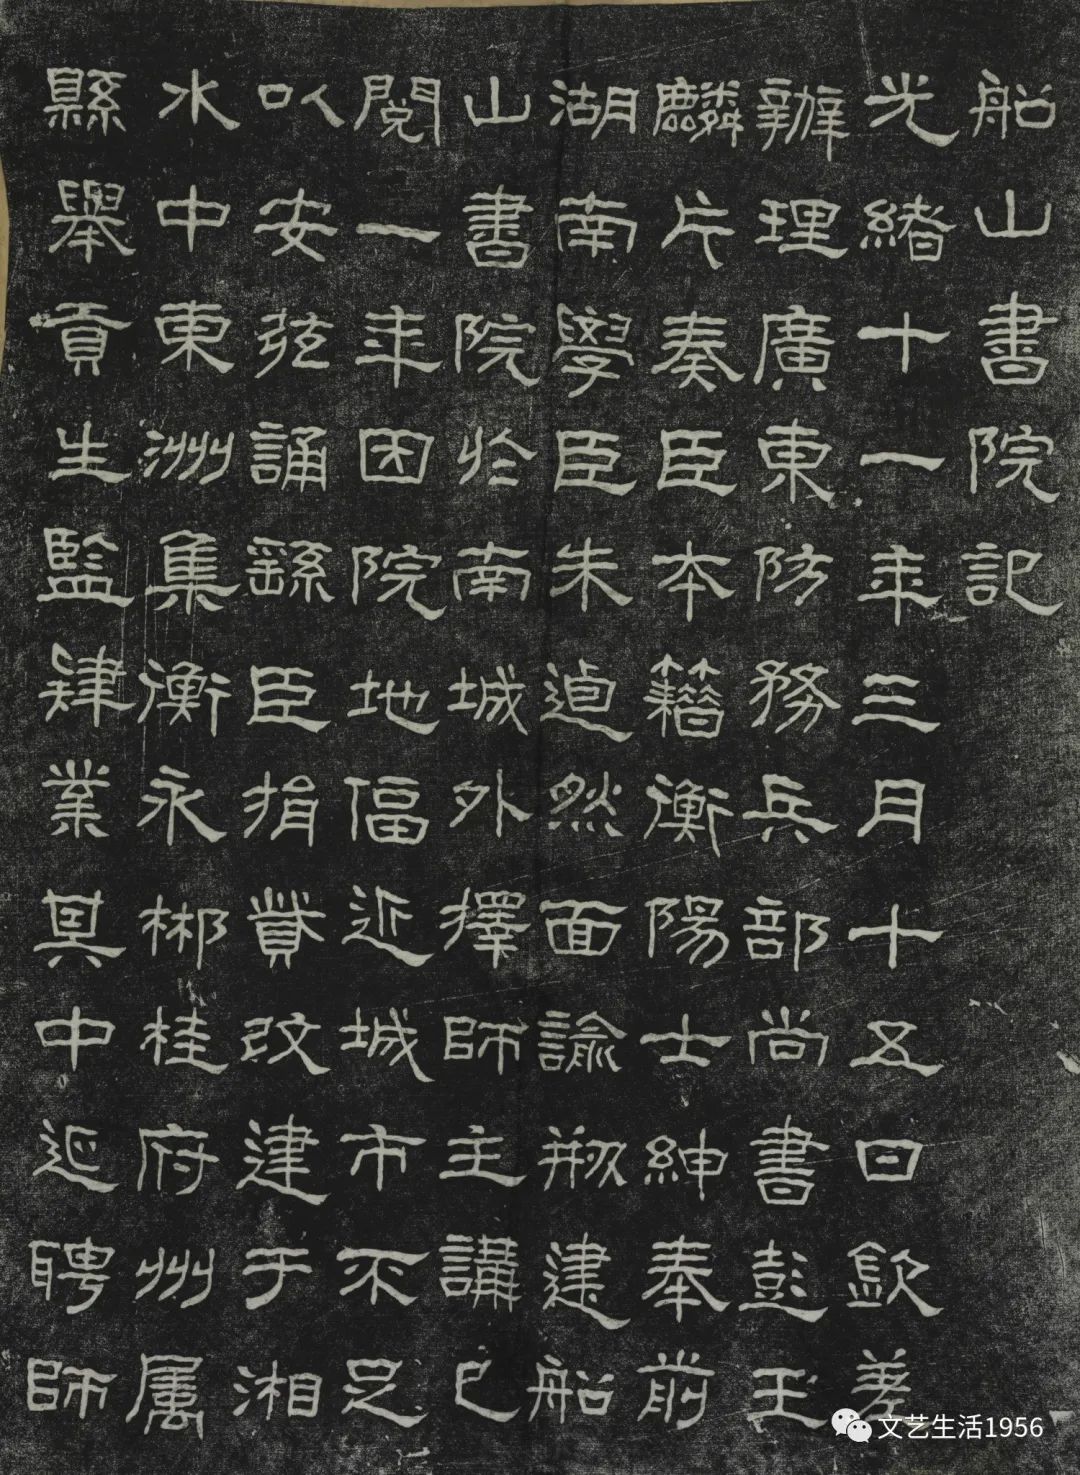 船山書院記
光緒十一年三月十五日欽差
辦理廣東防務兵部尚書彭玉
麟片奏臣本籍衡陽士紳奉前
湖南學臣朱逌然面諭剏建船
山書院於南城外擇師主講已
閱一年因院地偪近城市不足
以安弦誦繇臣捐貲改建于湘
水中東洲集衡永郴桂府州属
縣舉貢生監肄業其中延聘師
文艺生活1956